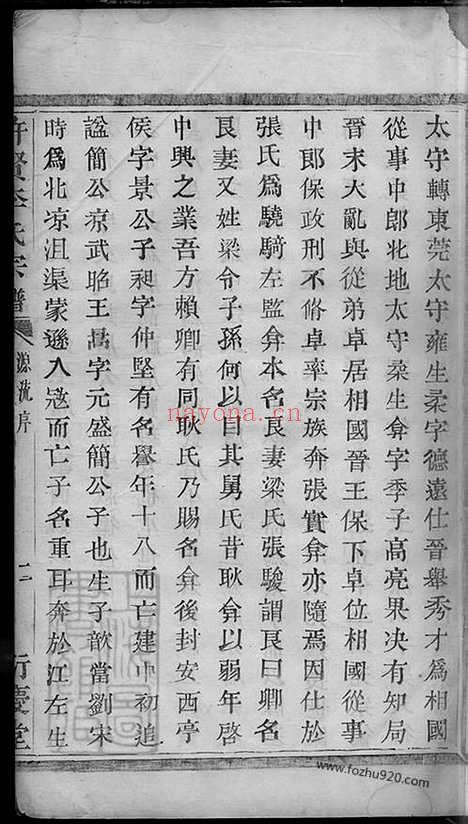 太守轉東莞太守雍生柔字德遠仕晉舉秀才爲相國
從事中郎北地太守柔生弇字季子高亮果决有知局
晉末大亂與從弟卓居相國晉王保下卓位相國從事
中郎保政刑不脩卓率宗族奔張實弇亦隨焉因仕於
張氏爲驍騎左監弇本名良妻梁氏張駿謂良曰卿名
良妻又姓梁令子孫何以目其舅氏昔耿弇以弱年啓
中興之業吾方賴卿有同耿氏乃賜名弇後封安西亭
侯字景公子昶字仲堅有名譽年十八而亡建中初追
謚簡公凉武昭王暠字元盛簡公子也生子歆當劉宋
時爲北凉沮渠蒙遜入寇而亡子名重耳奔於江左生
許賢李氏宗譜 源流序 二 行慶堂
nayona.cn
www.fozhu920.com